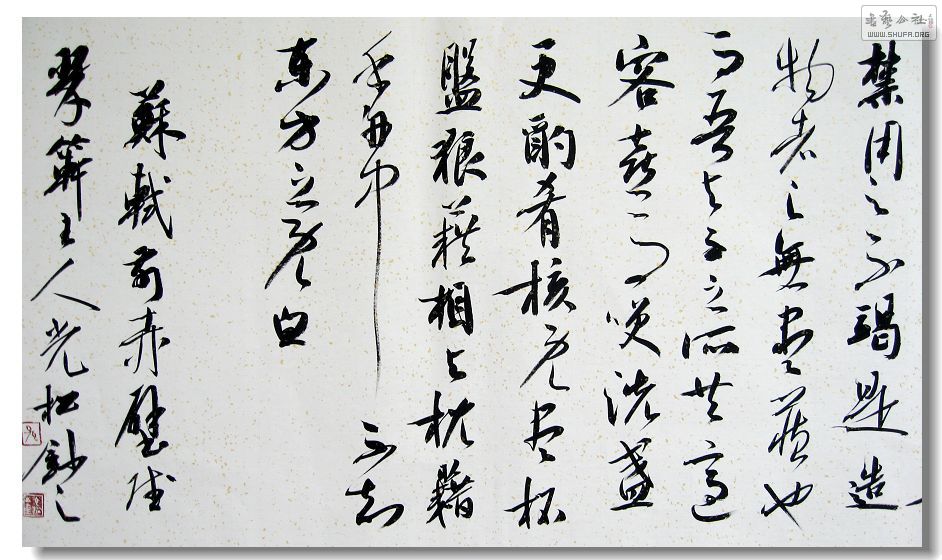 書藝公社
WWW.SHUFA.ORG
禁用之不竭是造
物者之無盡藏也
而吾与子之所共適
客喜而笑洗盞
更酌肴核既盡杯
盤狼藉相与枕藉
乎舟中 不知
東方之既白
蘇軾前赤壁賦
主人光松鈔之